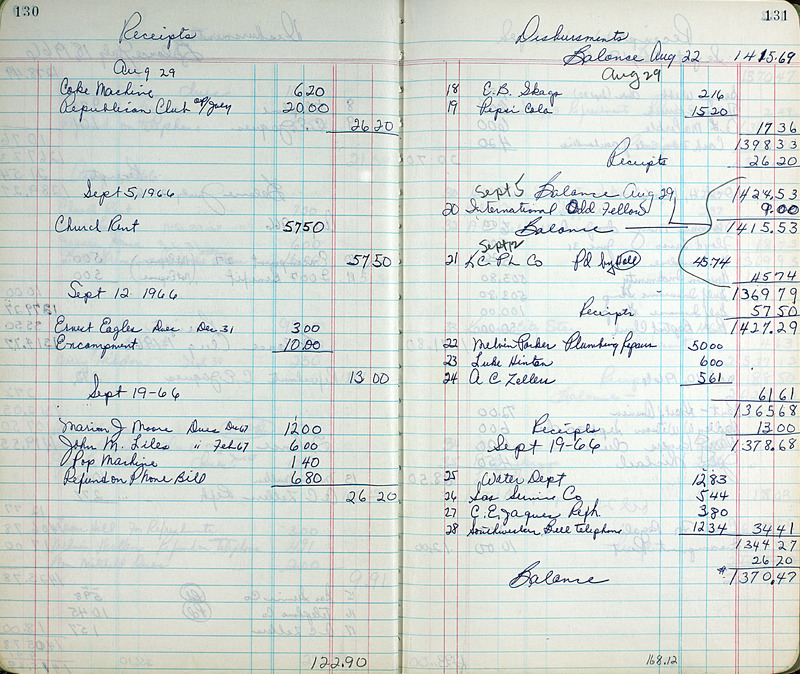 130
Receipts
Aug 29
Coke Machine 6 20
Republican Club 20.00
26 20
Sept 5, 1966
Church Rent 57 50
57 50
Sept 12 1966
Ernest Eagles Dues Dec 31 3 00
Encampment 10.00
13 00
Sept 19-66
Marion J Moore Dues Dec 67 12 00
John M. Liles " Feb 67 6 00
Pop Machine 1 40
Refund on Phone Bill 6 80
26 20
122.90
131
Disbursments
Balance Aug 22 1415.69
Aug 29
18 E.B. Skags 2 16
19 Pepsi Cola 15 20
17 36
1398 33
Receipts 26 20
Sept 5 Balance Aug 29 1424.53
20 International Odd Fellows 9.00
Balance 1415.53
Sept 12
21 K.C. P. L Co Pd by 45.74
45 74
1369 79
Receipts 57 50
1427.29
22 Melvin Parker Plumbing Repairs 50 00
23 Luke Hinton 6 00
24 A C Zellers 5 61
61 61
1365 68
Receipts 13 00
Sept 19-66 1378.68
25 Water Dept 12 83
26 Gas Service Co 5 44
27 C. E. Jaques 3 80
28 Southwestern Bell telephone 12 34 34 41
1344 27
26 20
Balance 1370.47
168.12